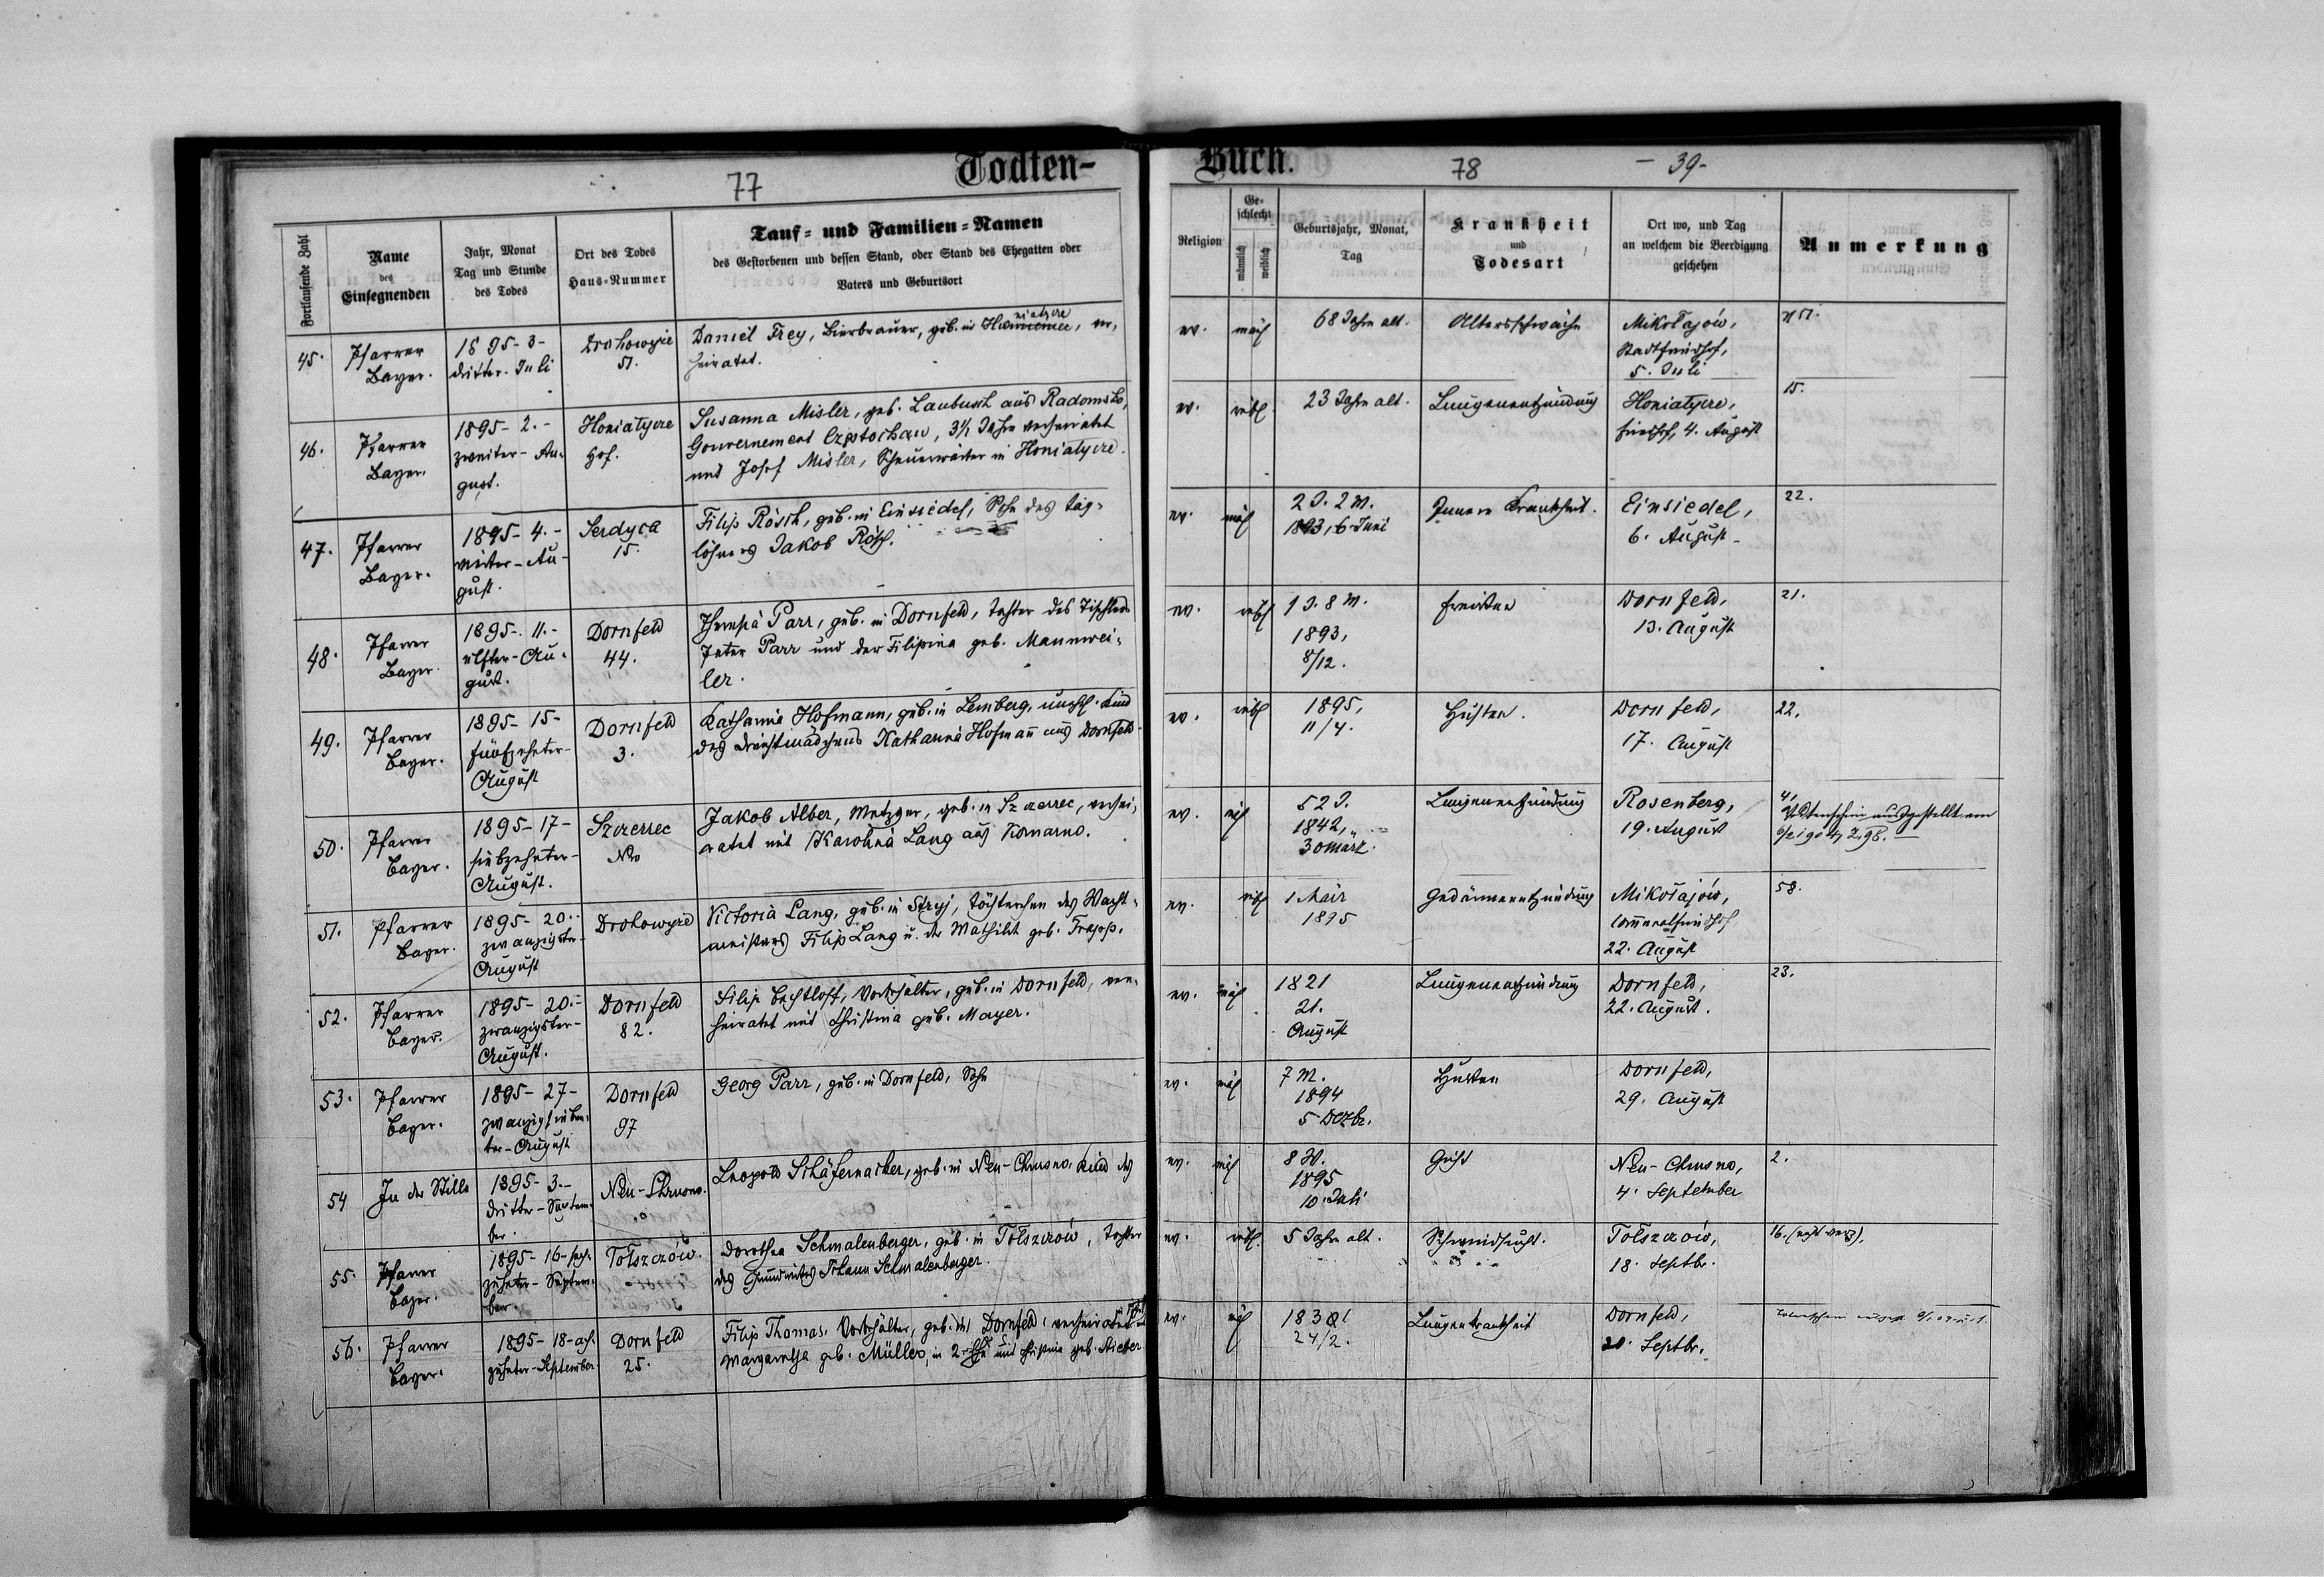 77
Todten-
Fortlaufende Zahl
Name
des
Einsegnenden
Jahr, Monat
Tag und Stunde
des Todes
Ort des Todes
Haus-Nummer
Tauf- und Familien-Namen
des Gestorbenen und dessen Stand, oder Stand des Ehegatten oder
Vaters und Geburtsort
45.
Pfarrer
Bayer.
1895-3-
dritter-Juli
Drohowyże
51.
Daniel Frey, Bierbrauer, geb. in
niatycze
ver,
heiratet.
46.
Pfarrer
Bayer.
1895-2.-
zweiter-Au-
gust.
Honiatycze
Hof.
Susanna Misler, geb. Laubusch aus Radomsko,
Gouvernement Czestochau, 3½ Jahre verheiratet
mit Josef Misler, in Honiatycze.
47.
Pfarrer
Bayer.
1895-4.-
vierter-Au-
gust.
Serdyca
15.
Filip Rösch, geb. in Einsiedel, Sohn des Tag-
löhners Jakob Rösch.
48.
Pfarrer
Bayer.
1895-.11.-
elfter-Au-
gust.
Dornfeld
44.
Parr, geb. in Dornfeld, Tochter des Tischlers
Peter Parr und der Filipina geb. Mannwei-
ler.
49.
Pfarrer
Bayer.
1895-15-
fünfzehnter-
August
Dornfeld
3.
Katharina Hofmann, geb. in Lemberg, unehl. Kind
des Dienstmädchens Katharina Hofmañ aus Dornfeld.
50.
Pfarrer
Bayer.
1895-17-
siebzehnter-
August.
Szczerrec
No
Jakob Alber, Metzger, geb. in Szczerrec, verhei-
ratet mit Karolina Lang aus Komarno.
51.
Pfarrer
Bayer.
1895-20.-
zwanzigster-
August
Drohowyże
Victoria Lang, geb. in Stryj, Töchterchen des Wacht-
meisters Filip Lang u. der Mathilde geb.
52.
Pfarrer
Bayer.
1895-20.-
zwanzigster-
August.
Dornfeld
82.
Filip Bechtloff, Vorbehälter, geb. in Dornfeld, ver-
heiratet mit Christina geb. Mayer.
53.
Pfarrer
Bayer.
1895-27-
zwanzigsieben-
ter-August
Dornfeld
97
Georg Parr, geb. in Dornfeld, Sohn
54
In der Stille
1895-3.-
dritter-Septem-
ber.
Neu-Chrusno.
Leopold Schäfernacker, geb. in Neu-Chrusno, Kind des
55.
Pfarrer
Bayer.
1895-16-sech-
zehnter-Septem-
ber.
Tołszczów.
Dorothea Schmalenberger, geb. in Tołszczów, Tochter
des Grundwirtes Johann Schmalenberger.
56.
Pfarrer
Bayer.
1895-18-acht-
zehnter-September
Dornfeld
25.
Filip Thomas, Vorbehälter, geb. in Dornfeld, verheiratet
Margaretha geb. Müller, in 2. Ehe mit Christina geb.
Buch.
78
-39-
Religion
Ge-
schlecht
männlich
weiblich
Geburtsjahr, Monat,
Tag
Krankheit
und
Todesart
Ort wo, und Tag
an welchem die Beerdigung
geschehen
Anmerkung
ev.
mäl
68 Jahre alt.
Altersschwäche
Mikołajów,
Stadtfriedhof,
5. Juli
51.
ev.
weibl
23 Jahre alt.
Lungenentzündung
Honiatycze,
Friedhof, 4. August
15.
ev.
mäl
2 J. 2 M.
1893, 6. Juni
Innere Krankheit.
Einsiedel,
6. August
22.
ev.
weibl
1 J. 8 M.
1893,
8/12.
Dornfeld,
13. August
21.
ev.
weibl
1895,
11/4.
Husten.
Dornfeld,
17. August
22.
ev.
mäl
52 J.
1842,
30 März
Lungenentzündung
Rosenberg,
19. August
4,
Todtenschein ausgestellt am
ev.
weibl
1 März
1895
Gedärmentzündung
Mikołajów,
22. August
58.
ev.
mäl
1821
21.
August
Lungenentzündung
Dornfeld,
22. August.
23.
ev.
mäl
7 M.
1894
5 Dezbr.
Husten
Dornfeld,
29. August
ev.
mäl
8 W.
1895
10. Juli
Gicht
Neu-Chrusno,
4. September
2.
ev.
weibl.
5 Jahre alt.
Schwindsucht.
Tołszczów,
18. Septbr.
16.
ev.
mäl
24/2.
Lungenkrankheit
Dornfeld,
20. Septbr.